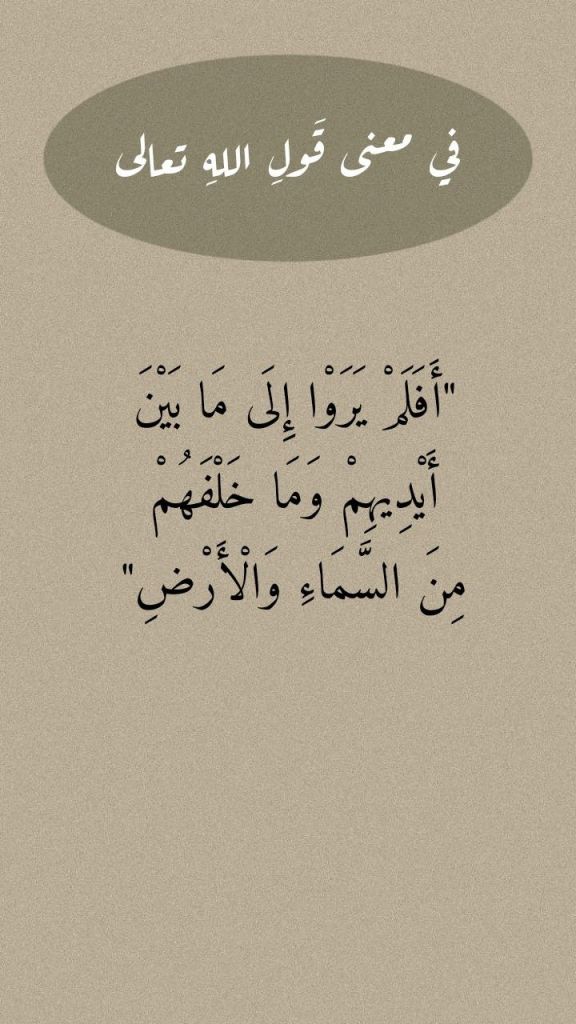 في معنى قَولِ اللهِ تعالى
"أَفَلَمْ يَرَوْا إِلَى مَا بَيْنَ
أَيْدِيهِمْ وَمَا خَلْفَهُمْ
مِنَ السَّمَاءِ وَالْأَرْضِ"